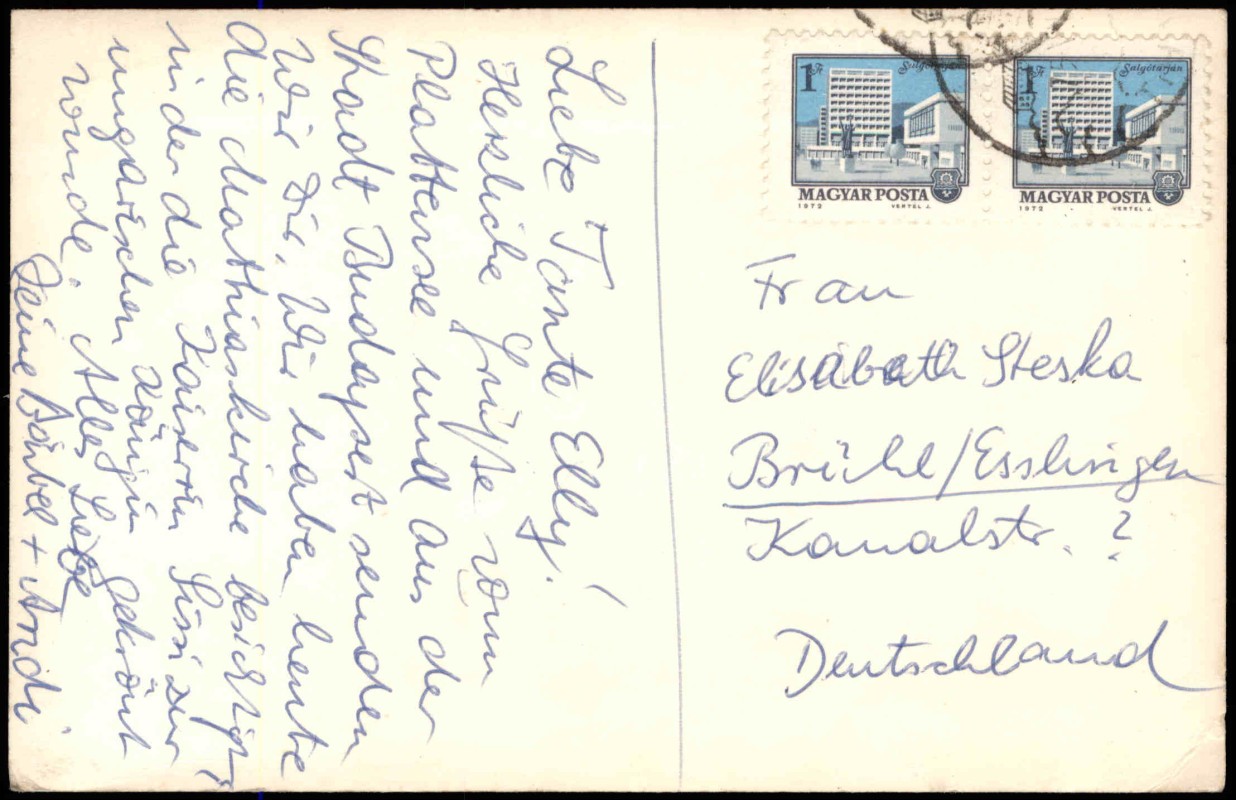 Liebe Tante Elly!
Herzliche Grüße vom
Plattensee und aus der
Stadt Budapest senden
wir Dir. Wir haben heute
die Mathiaskirche besichtigt,
in der die Kaiserin Sissi zur
ungarischen Königin gekrönt
wurde. Alles Liebe
Deine Bärbel + Andi.
1 Ft Salgótarján
MAGYAR POSTA
1972 VERTEL J.
1 Ft Salgótarján
MAGYAR POSTA
1972 VERTEL J.
Frau
Elisabeth Steska
Brühl/Esslingen
Kanalstr. ?
Deutschland